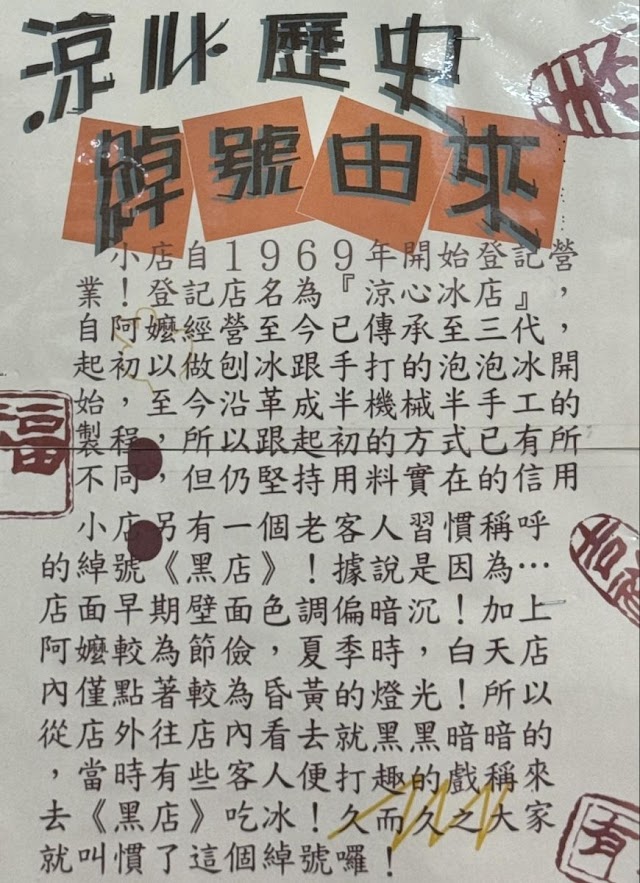 涼心歷史
綽號由來
小店自1969年開始登記營
業！登記店名為『涼心冰店』，
自阿嬤經營至今已傳承至三代，
起初以做刨冰跟手打的泡泡冰開
始，至今沿革成半機械半手工的
製程，所以跟起初的方式已有所
不同，但仍堅持用料實在的信用
小店另有一個老客人習慣稱呼
的綽號《黑店》！據說是因為…
店面早期壁面色調偏暗沉！加上
阿嬤較為節儉，夏季時，白天店
內僅點著較為昏黃的燈光！所以
從店外往店內看去就黑黑暗暗的
，當時有些客人便打趣的戲稱來
去《黑店》吃冰！久而久之大家
就叫慣了這個綽號囉！
福
有